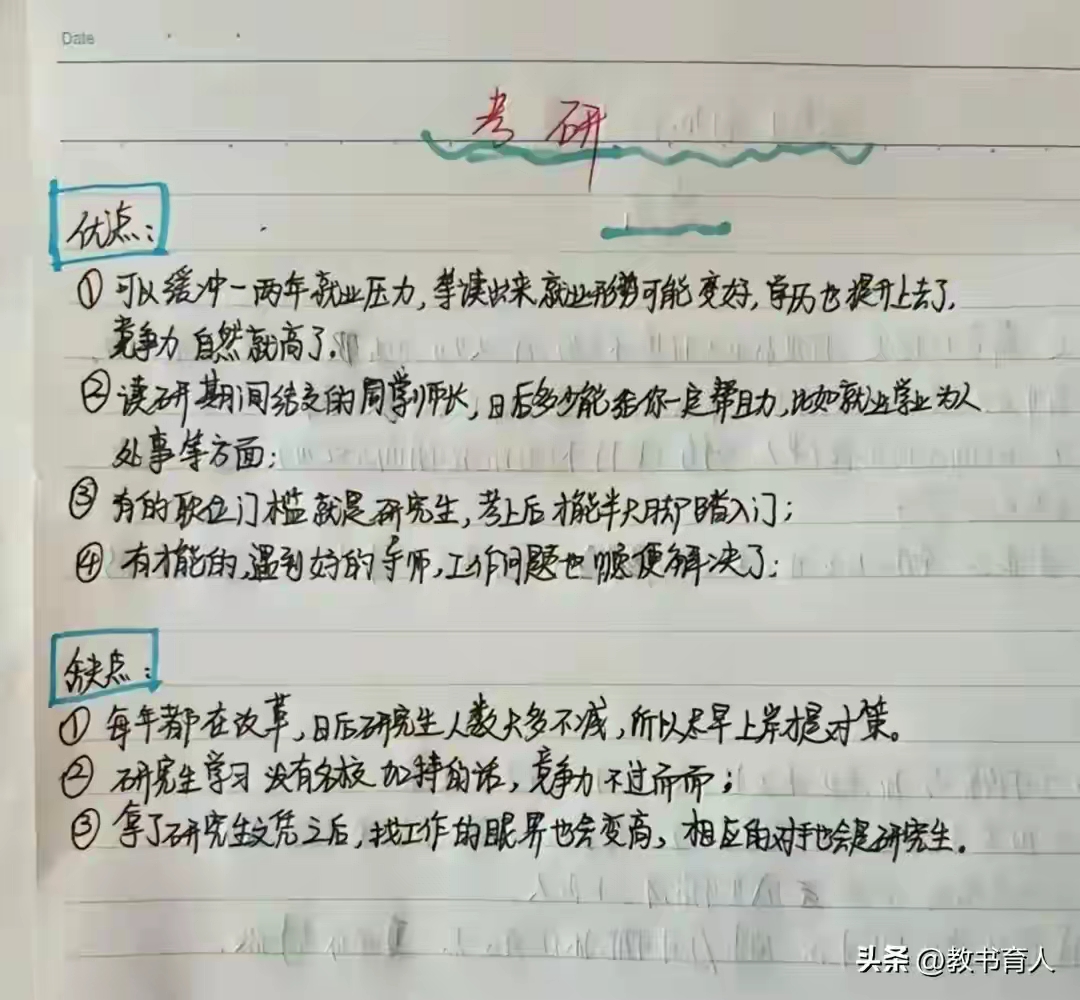 Date
考研
优点：
①可以缓冲一两年就业压力，等读出来就业形势可能变好，学历也提升上去了，
竞争力自然就高了。
②读研期间结交的同学师长，日后多少能给你一定帮助，比如就业学业为人
处事等方面；
③有的职位门槛就是研究生，考上后才能半只脚踏入门；
④有才能的，遇到好的导师，工作问题也顺便解决了；
缺点：
①每年都在改革，日后研究生人数大多不减，所以尽早上岸才是对策。
②研究生学习没有名校加持的话，竞争力不过而而；
③拿了研究生文凭之后，找工作的眼界也会变高，相应的对手也会是研究生。
头条 @教书育人